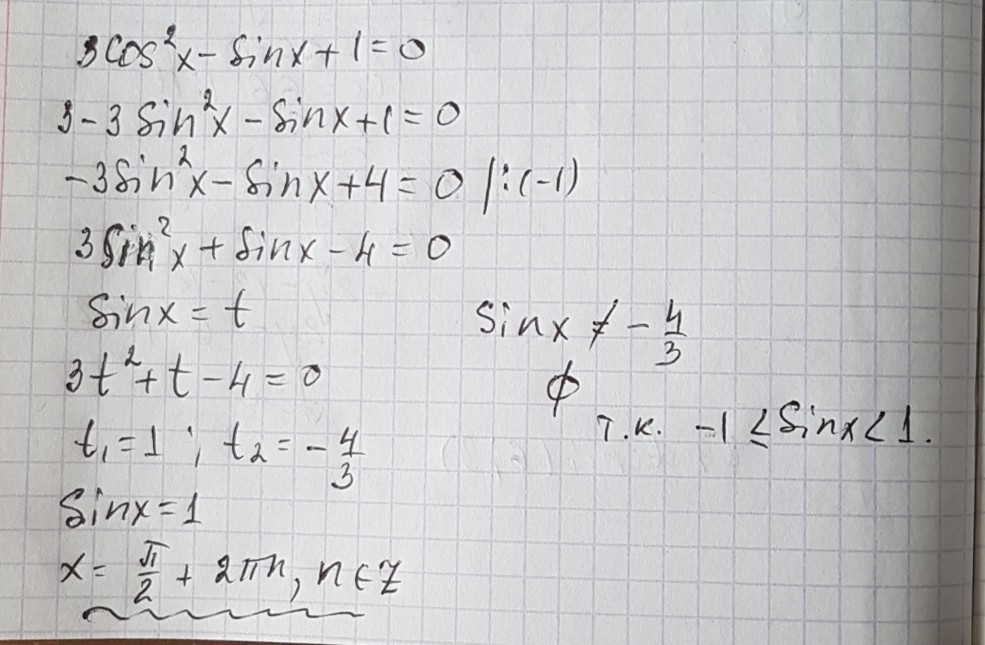 3cos²x - sinx + 1 = 0
3 - 3 sin²x - sinx + 1 = 0
-3sin²x - sinx + 4 = 0 |:(-1)
3sin²x + sinx - 4 = 0
sinx = t
3t² + t - 4 = 0
t₁ = 1 ; t₂ = -4/3
sinx = 1
x = π/2 + 2πn, n ∈ Z
sinx ≠ -4/3
∅
т.к. -1 ≤ sinx < 1.